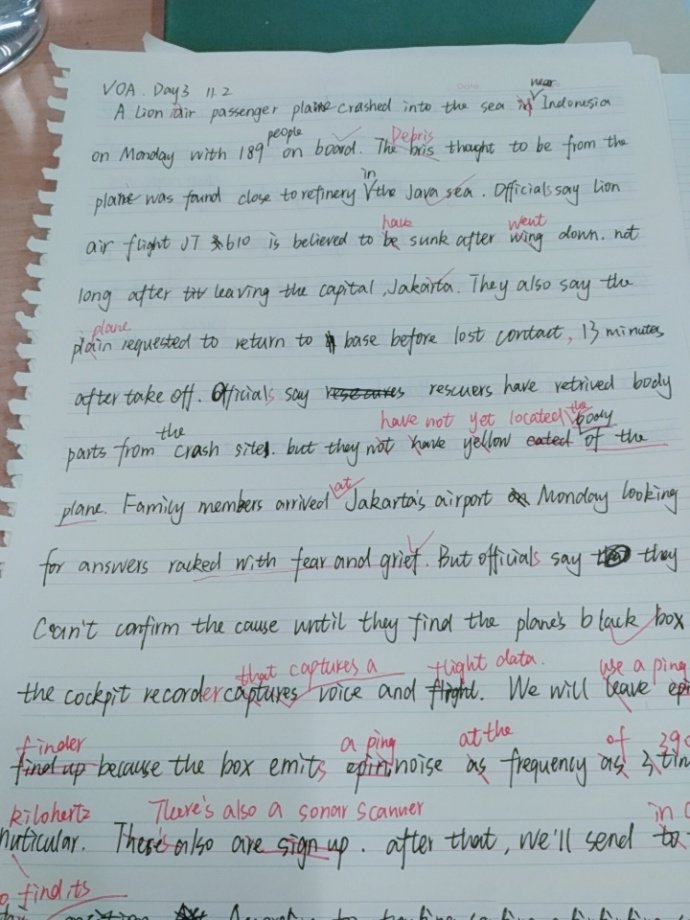 VOA. Day3 11.2
near
A Lion air passenger plane crashed into the sea in Indonesia
people Debris
on Monday with 189 on board. The bris thought to be from the
in
plane was found close to refinery the Java sea. Officials say Lion
have went
air flight JT 610 is believed to be sunk after wing down. not
long after leaving the capital, Jakarta. They also say the
plane
plain requested to return to base before lost contact, 13 minutes
after take off. Officials say rescuers have retrived body
have not yet located the body
the
parts from crash site. but they not have yellow eated of the
at
plane. Family members arrived Jakarta's airport on Monday looking
for answers racked with fear and grief. But officials say they
Can't confirm the cause until they find the plane's black box
that captures a flight data. use a ping
the cockpit recorder captures voice and flight. We will leave
finder a ping at the of
find up because the box emits epin noise as frequency as 3
kilohertz There's also a sonar scanner in
There's also are sign up. after that, we'll send to
find its